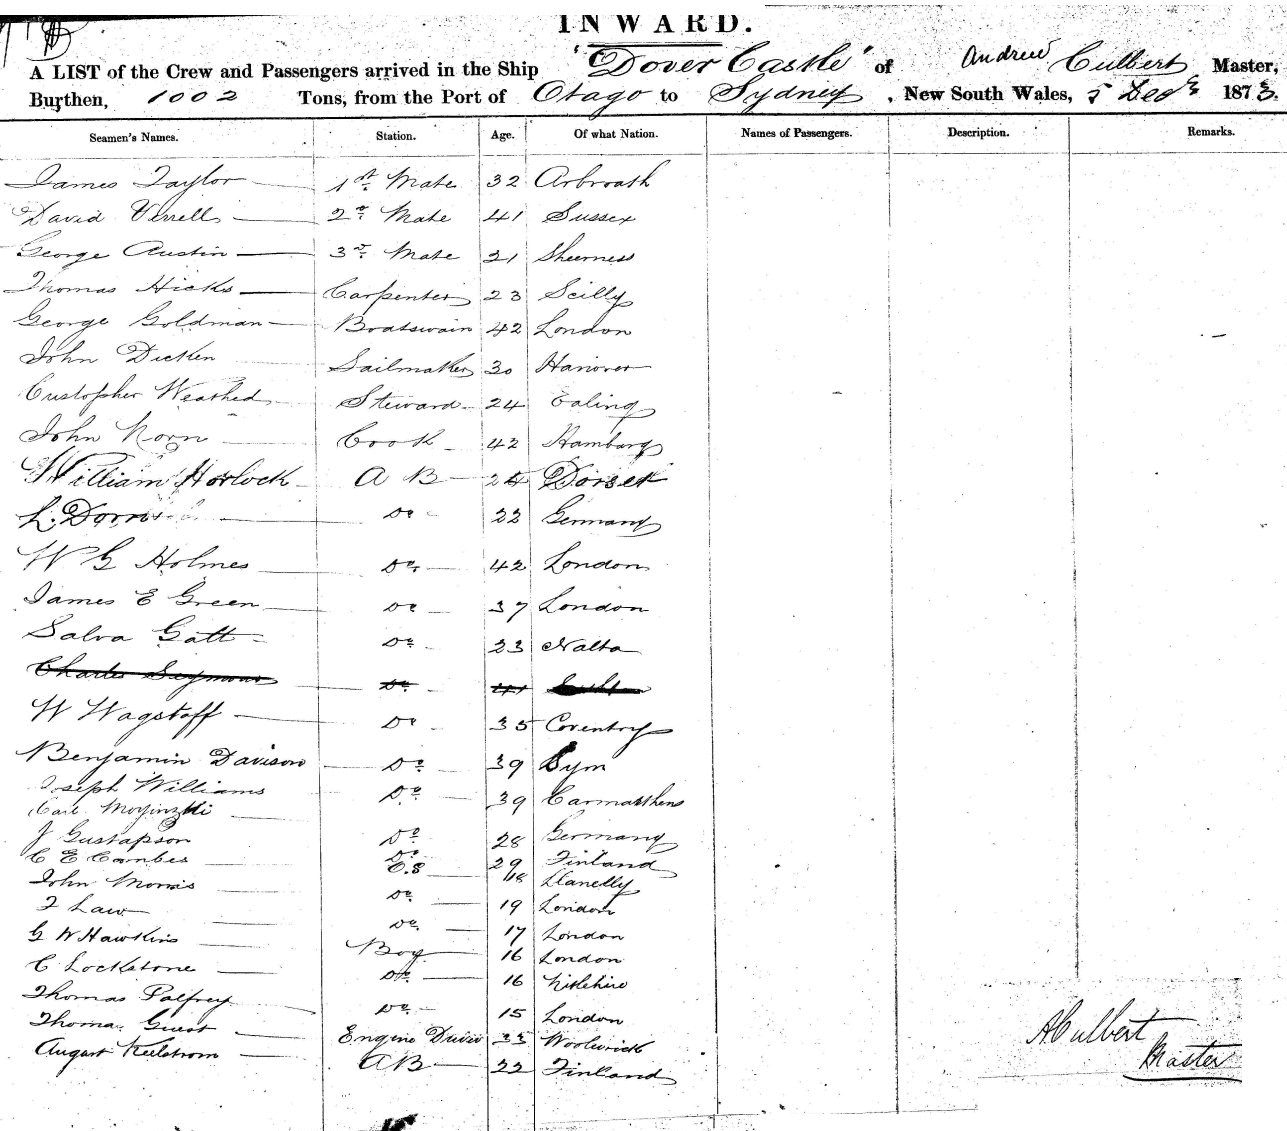 INWARD.
A LIST of the Crew and Passengers arrived in the Ship "Dover Castle" of Andrew Culbert Master,
Burthen, 1002 Tons, from the Port of Otago to Sydney, New South Wales, 5 Decr 1873.
Seamen's Names. Station. Age. Of what Nation. Names of Passengers. Description. Remarks.
James Taylor 1st Mate 32 Arbroath
David Verrell 2d Mate 41 Sussex
George Austin 3rd Mate 21 Sheerness
Thomas Hicks Carpenter 23 Scilly
George Goldman Boatswain 42 London
John Dicken Sailmaker 30 Hanover
Custopher Weathed Steward 24 Ealing
John Norn Cook 42 Hamburg
William Horlock A B 24 Dorset
L. Dorns Do 22 Germany
W G Holmes Do 42 London
James E Green Do 37 London
Salva Gatt Do 23 Malta
Charles Seymour Do 41
W Wagstaff Do 35 Coventry
Benjamin Davison Do 39 Lym
Joseph Williams Do 39 Carmarthens
Carl Moyinzki
J Gustafson Do 28 Germany
C E Combes Do 29 Finland
John Morris O.S 18 Llanelly
T Law Do 19 London
G W Hawkins Do 17 London
C Lockstone Boy 16 London
Thomas Palfrey Do 16
Thomas Guest Do 15 London
August Kulstrom Engine Driver 33 Woolwich
AB 22 Finland
A Culbert
Master